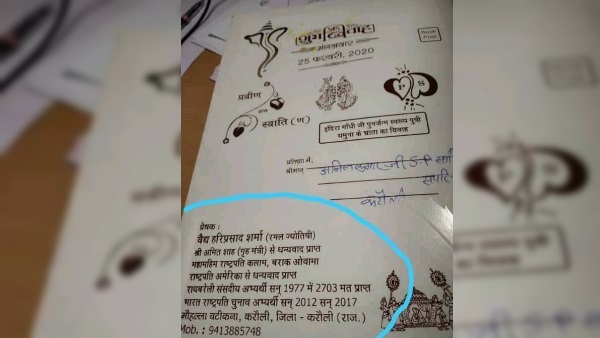 शुभ विवाह
मंगलवार
25 फरवरी, 2020
Book
Post
प्रवीण
संग
स्वाति (ण)
P
इंदिरा गाँधी जी पुनर्जन्म स्वरूप पुत्री
यमुना के भ्राता का विवाह
प्रतिष्ठा में,
श्रीमान्
प्रेषक :
वैद्य हरिप्रसाद शर्मा (रमल ज्योतिषी)
श्री अमित शाह (गृह मंत्री) से धन्यवाद प्राप्त
महामहिम राष्ट्रपति कलाम, बराक ओबामा
राष्ट्रपति अमेरिका से धन्यवाद प्राप्त
रायबरेली संसदीय अभ्यर्थी सन् 1977 में 2703 मत प्राप्त
भारत राष्ट्रपति चुनाव अभ्यर्थी सन् 2012 सन् 2017
मौहल्ला वटीकना, करौली, जिला - करौली (राज.)
Mob. : 9413885748